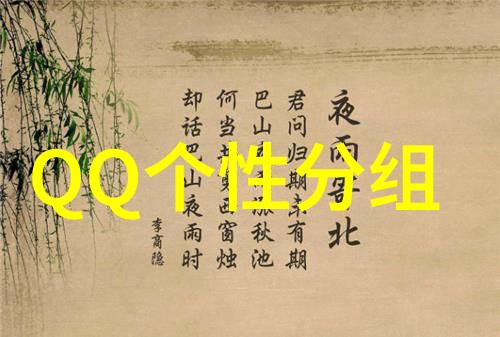 QQ个性分组
夜雨寄北
君问归期未有期
巴山夜雨涨秋池
何当共剪西窗烛
却话巴山夜雨时
李商隐